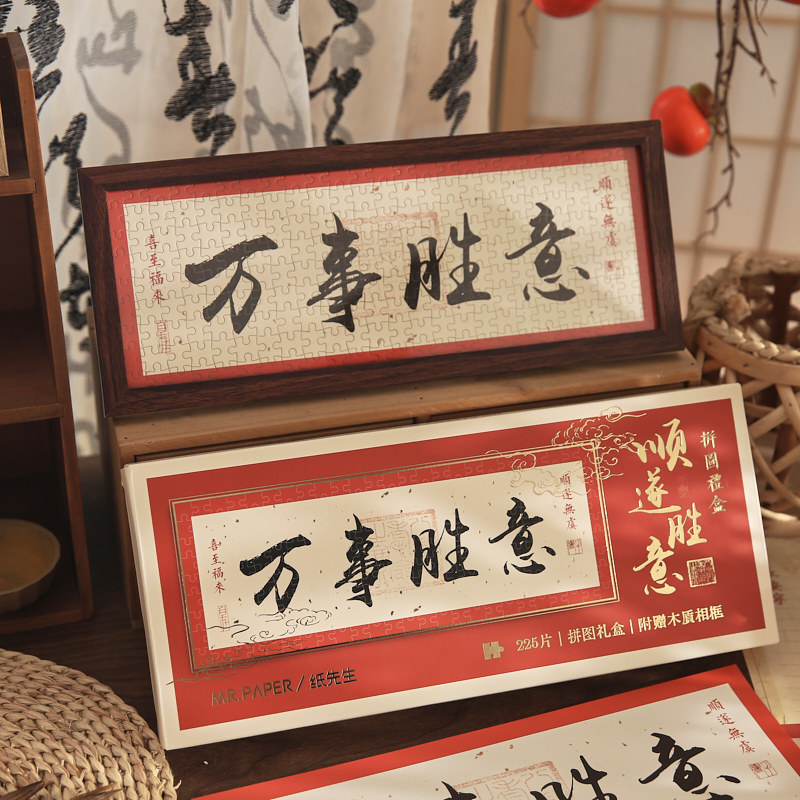 万事胜意
喜至福來
順遂無虞
顺遂胜意
拼圖禮盒
万事胜意
喜至福來
順遂無虞
225片 | 拼图礼盒 | 附赠木质相框
MR.PAPER / 纸先生
順遂無虞
胜意